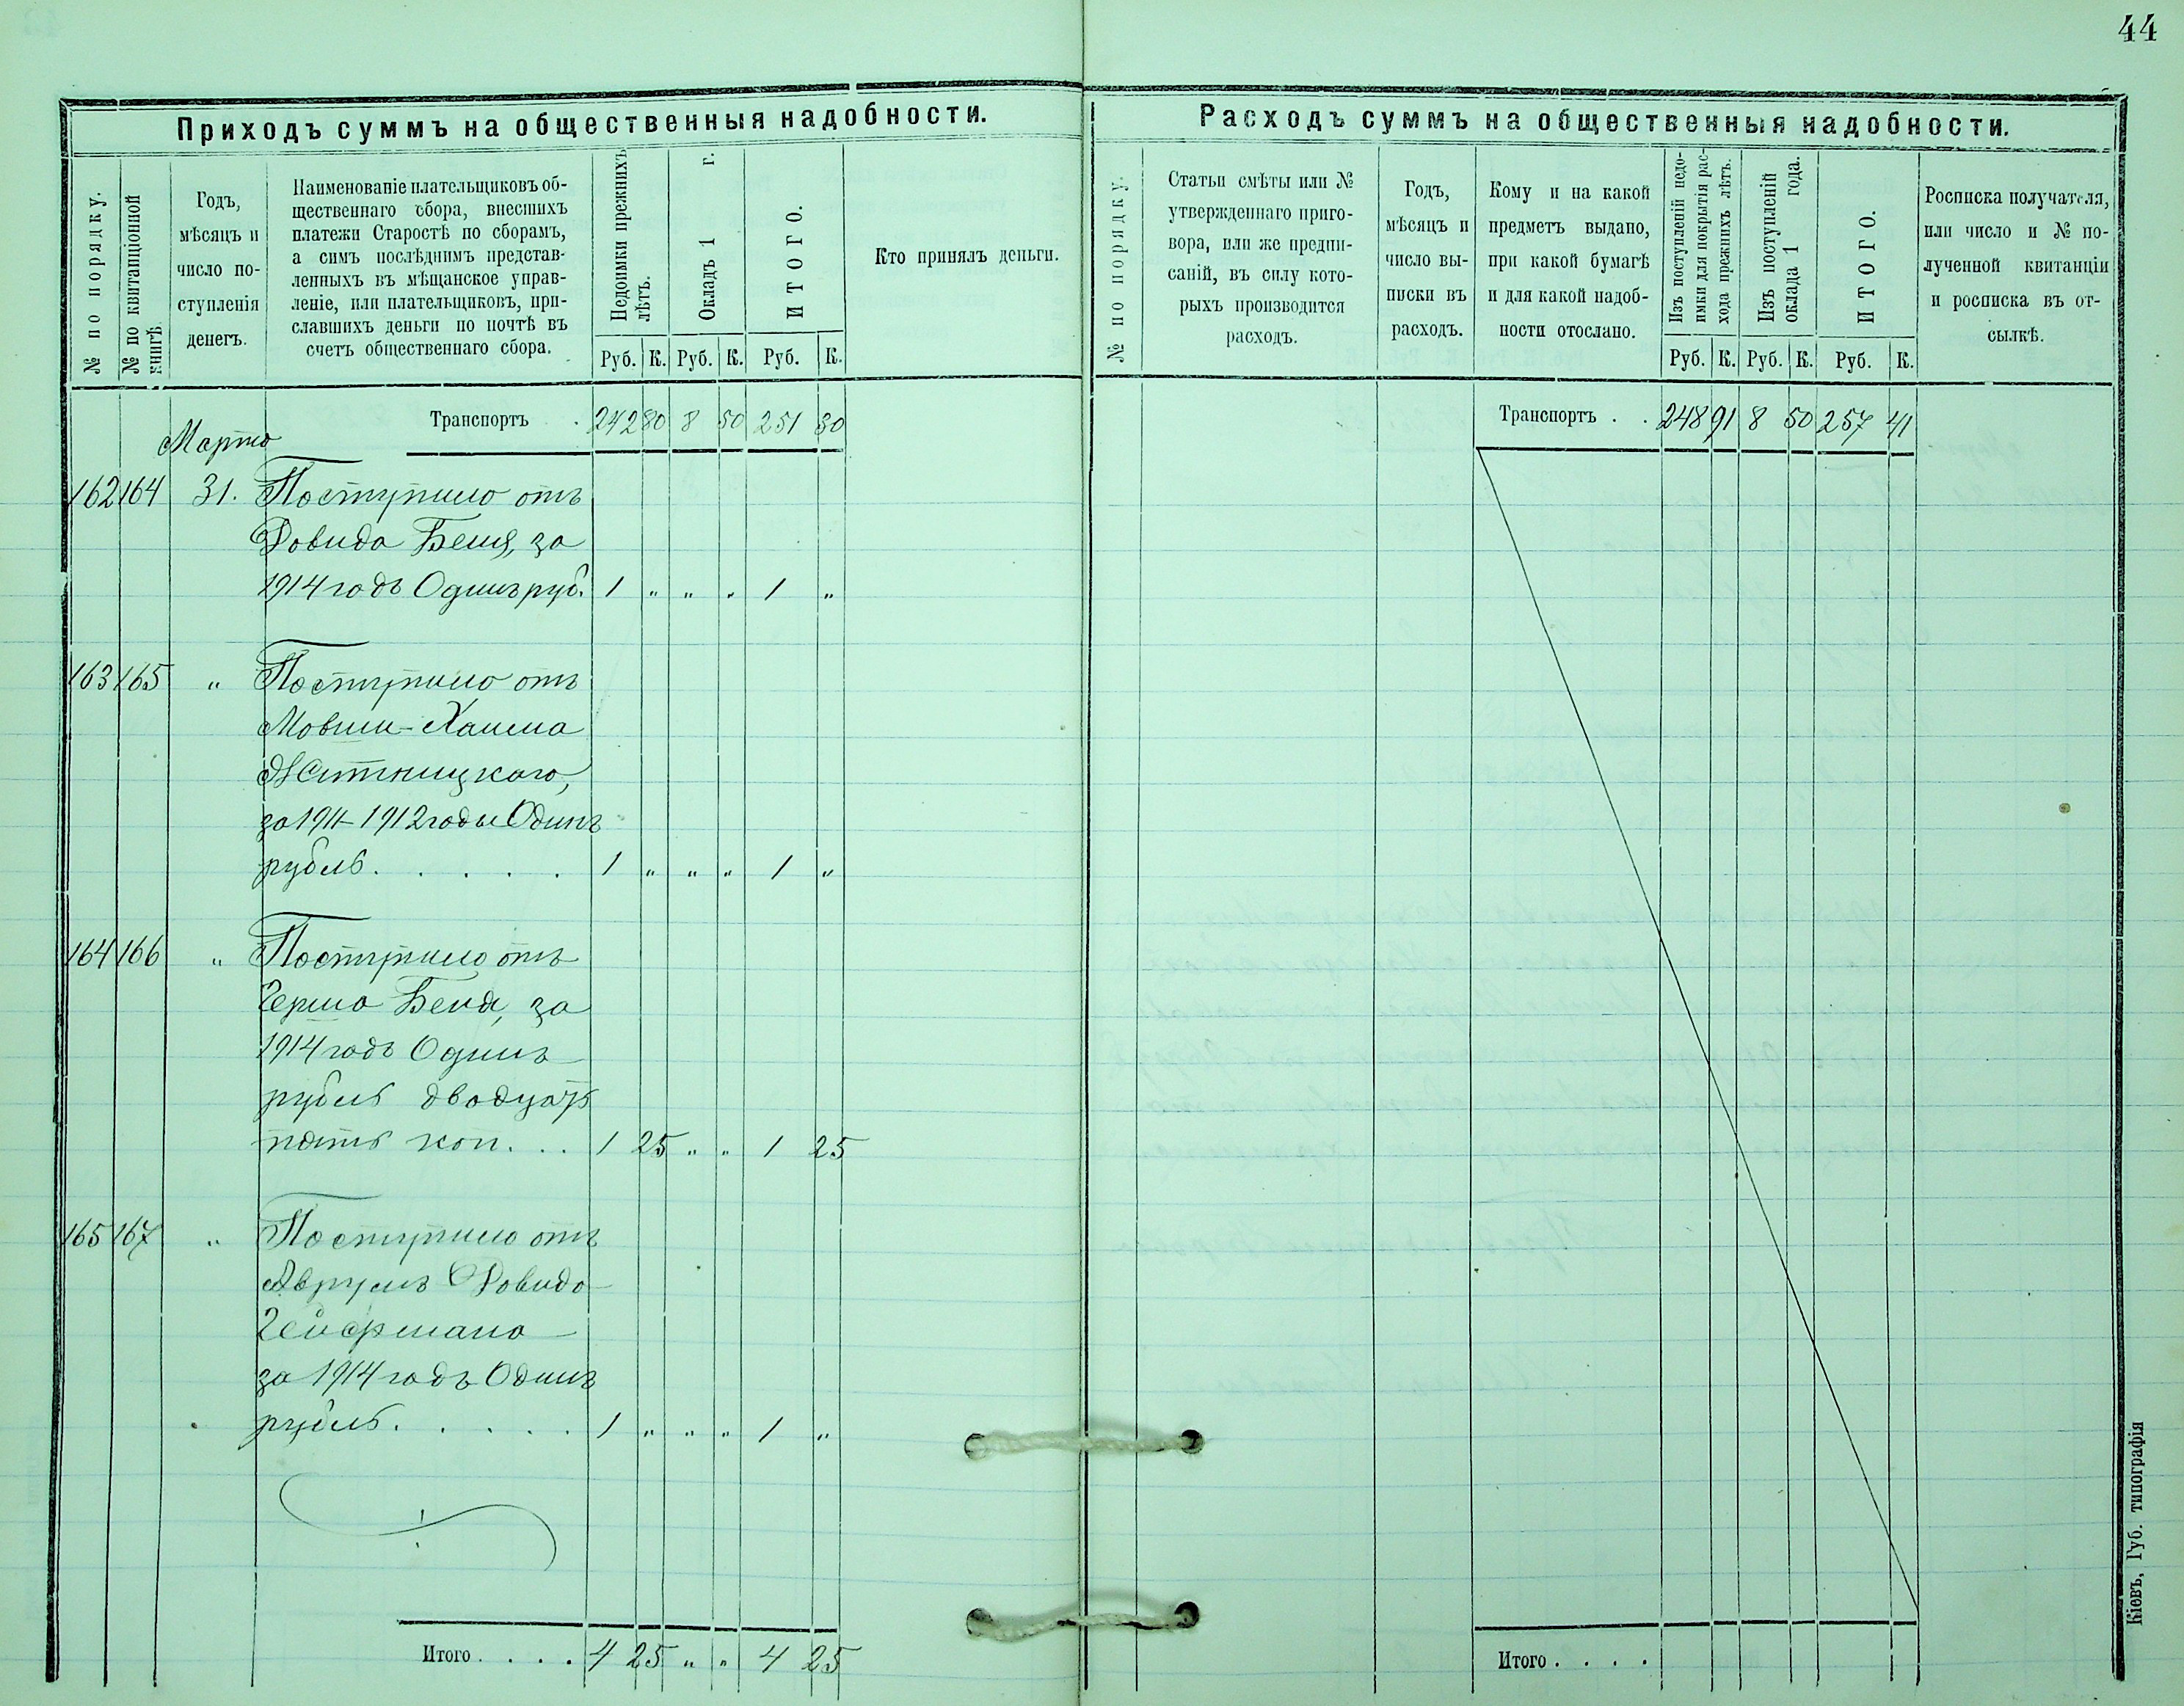 44
Приходъ суммъ на общественныя надобности.
№ по порядку.
№ по квитанціонной
книгѣ.
Годъ,
мѣсяцъ и
число по-
ступленія
денегъ.
Наименованіе плательщиковъ об-
щественнаго сбора, внесшихъ
платежи Старостѣ по сборамъ,
а симъ послѣднимъ представ-
ленныхъ въ мѣщанское управ-
леніе, или плательщиковъ, при-
славшихъ деньги по почтѣ въ
счетъ общественнаго сбора.
Недоимки прежнихъ
лѣтъ.
Окладъ 1 г.
ИТОГО.
Руб. К. Руб. К. Руб. К.
Кто принялъ деньги.
Транспортъ . 242 80 8 50 251 30
Марта
162 164 31. Поступило отъ
Довида Беня, за
1914 годъ Одинъ руб. 1 " " " 1 "
163 165 " Поступило отъ
Мовши-Хаима
Житницкаго,
за 1911-1912 годы Одинъ
рубль. . . . . . 1 " " " 1 "
164 166 " Поступило отъ
Герша Беня, за
1914 годъ Одинъ
рубль двадцать
пять коп. . . 1 25 " " 1 25
165 167 " Поступило отъ
Аврумъ Довида
Гейфмана
за 1914 годъ Одинъ
рубль. . . . . . 1 " " " 1 "
Итого . . . . 4 25 " " 4 25
Расходъ суммъ на общественныя надобности.
№ по порядку.
Статьи смѣты или №
утвержденнаго приго-
вора, или же предпи-
саній, въ силу кото-
рыхъ производится
расходъ.
Годъ,
мѣсяцъ и
число вы-
писки въ
расходъ.
Кому и на какой
предметъ выдано,
при какой бумагѣ
и для какой надоб-
ности отослано.
Изъ поступленій недо-
имки для покрытія рас-
хода прежнихъ лѣтъ.
Изъ поступленій
оклада 1 года.
ИТОГО.
Руб. К. Руб. К. Руб. К.
Росписка получателя,
или число и № по-
лученной квитанціи
и росписка въ от-
сылкѣ.
Транспортъ . . 248 91 8 50 257 41
Итого . . . .
Кіевъ, Губ. типографія